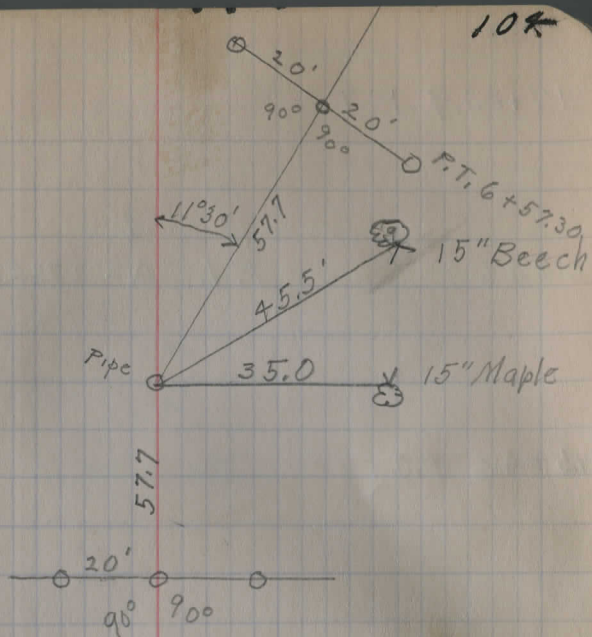 10K
20'
90° 20'
90°
P.T. 6+57.30
11°30'
57.7
15" Beech
45.5'
Pipe
35.0
15" Maple
57.7
20'
90° 90°